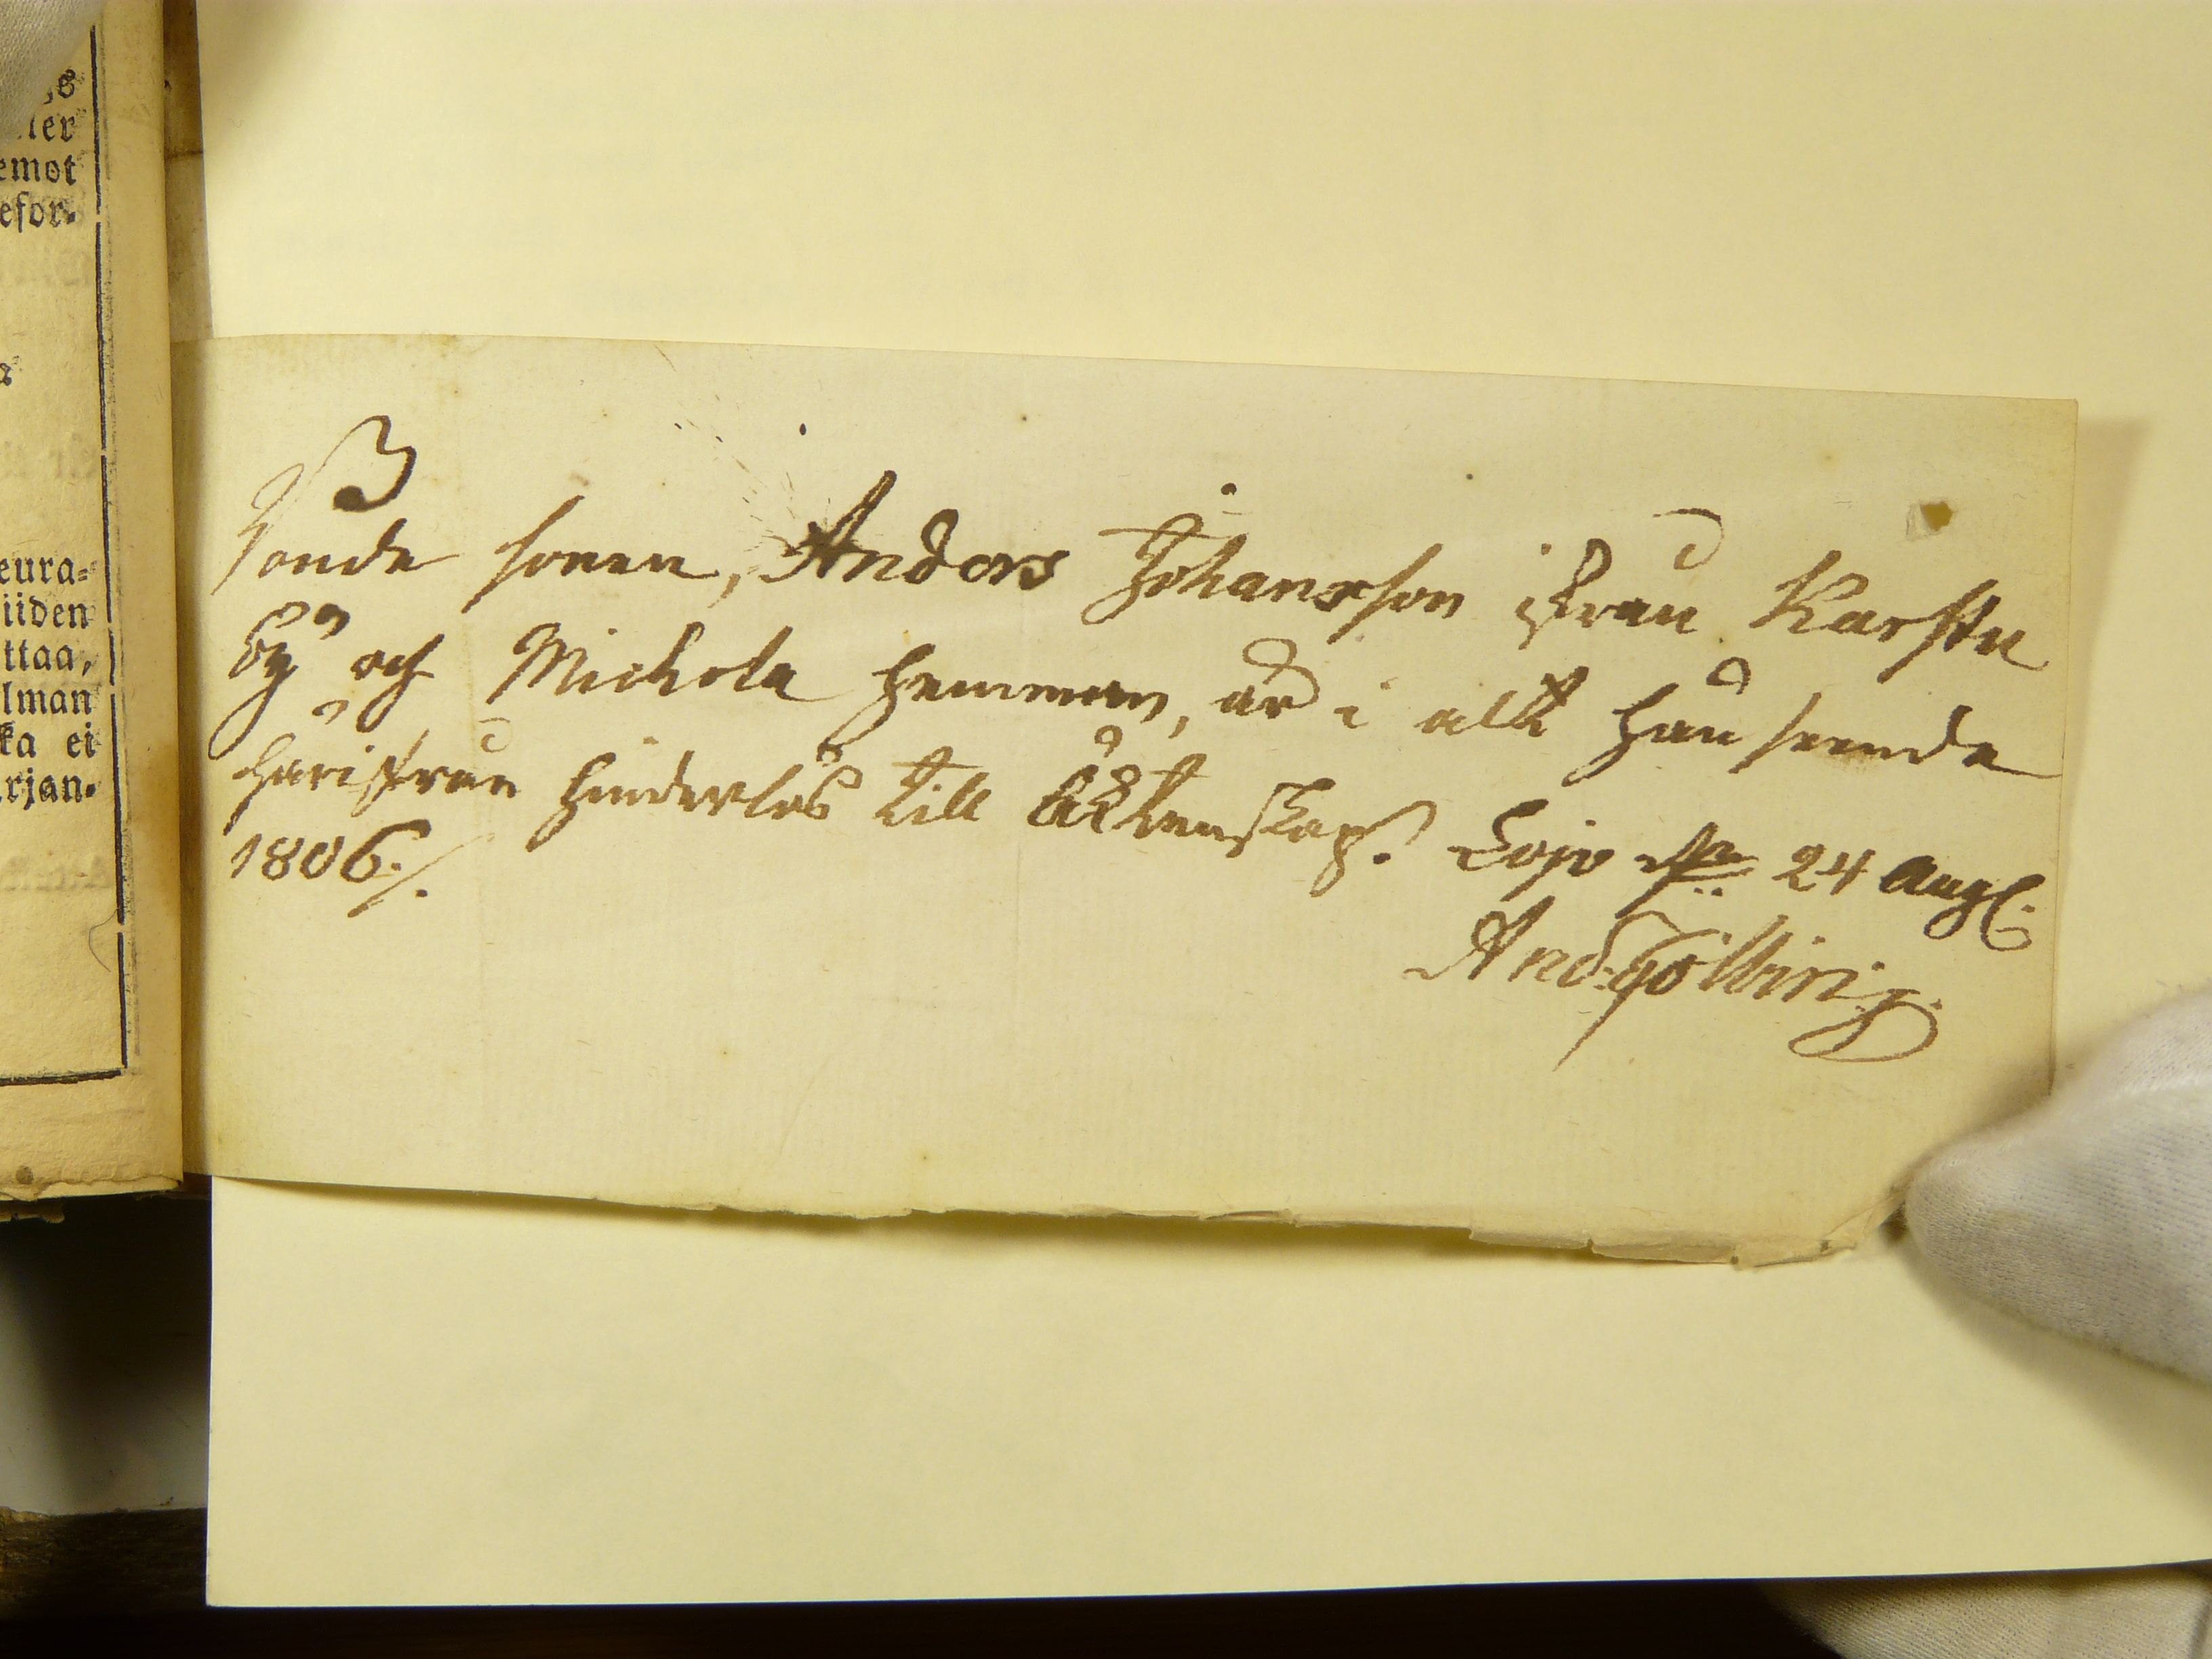 ler
emot
efor-
eura-
iiden
ttaa,
lman
ka ei
rjan-
Bonde sonen, Anders Johansson ifrån Karstu
By och Michola hemman, är i allt hän seende
härifrån hinderlös till Äcktenskap. Lojo d. 24 Aug.
1806./.
And: Tölbring.